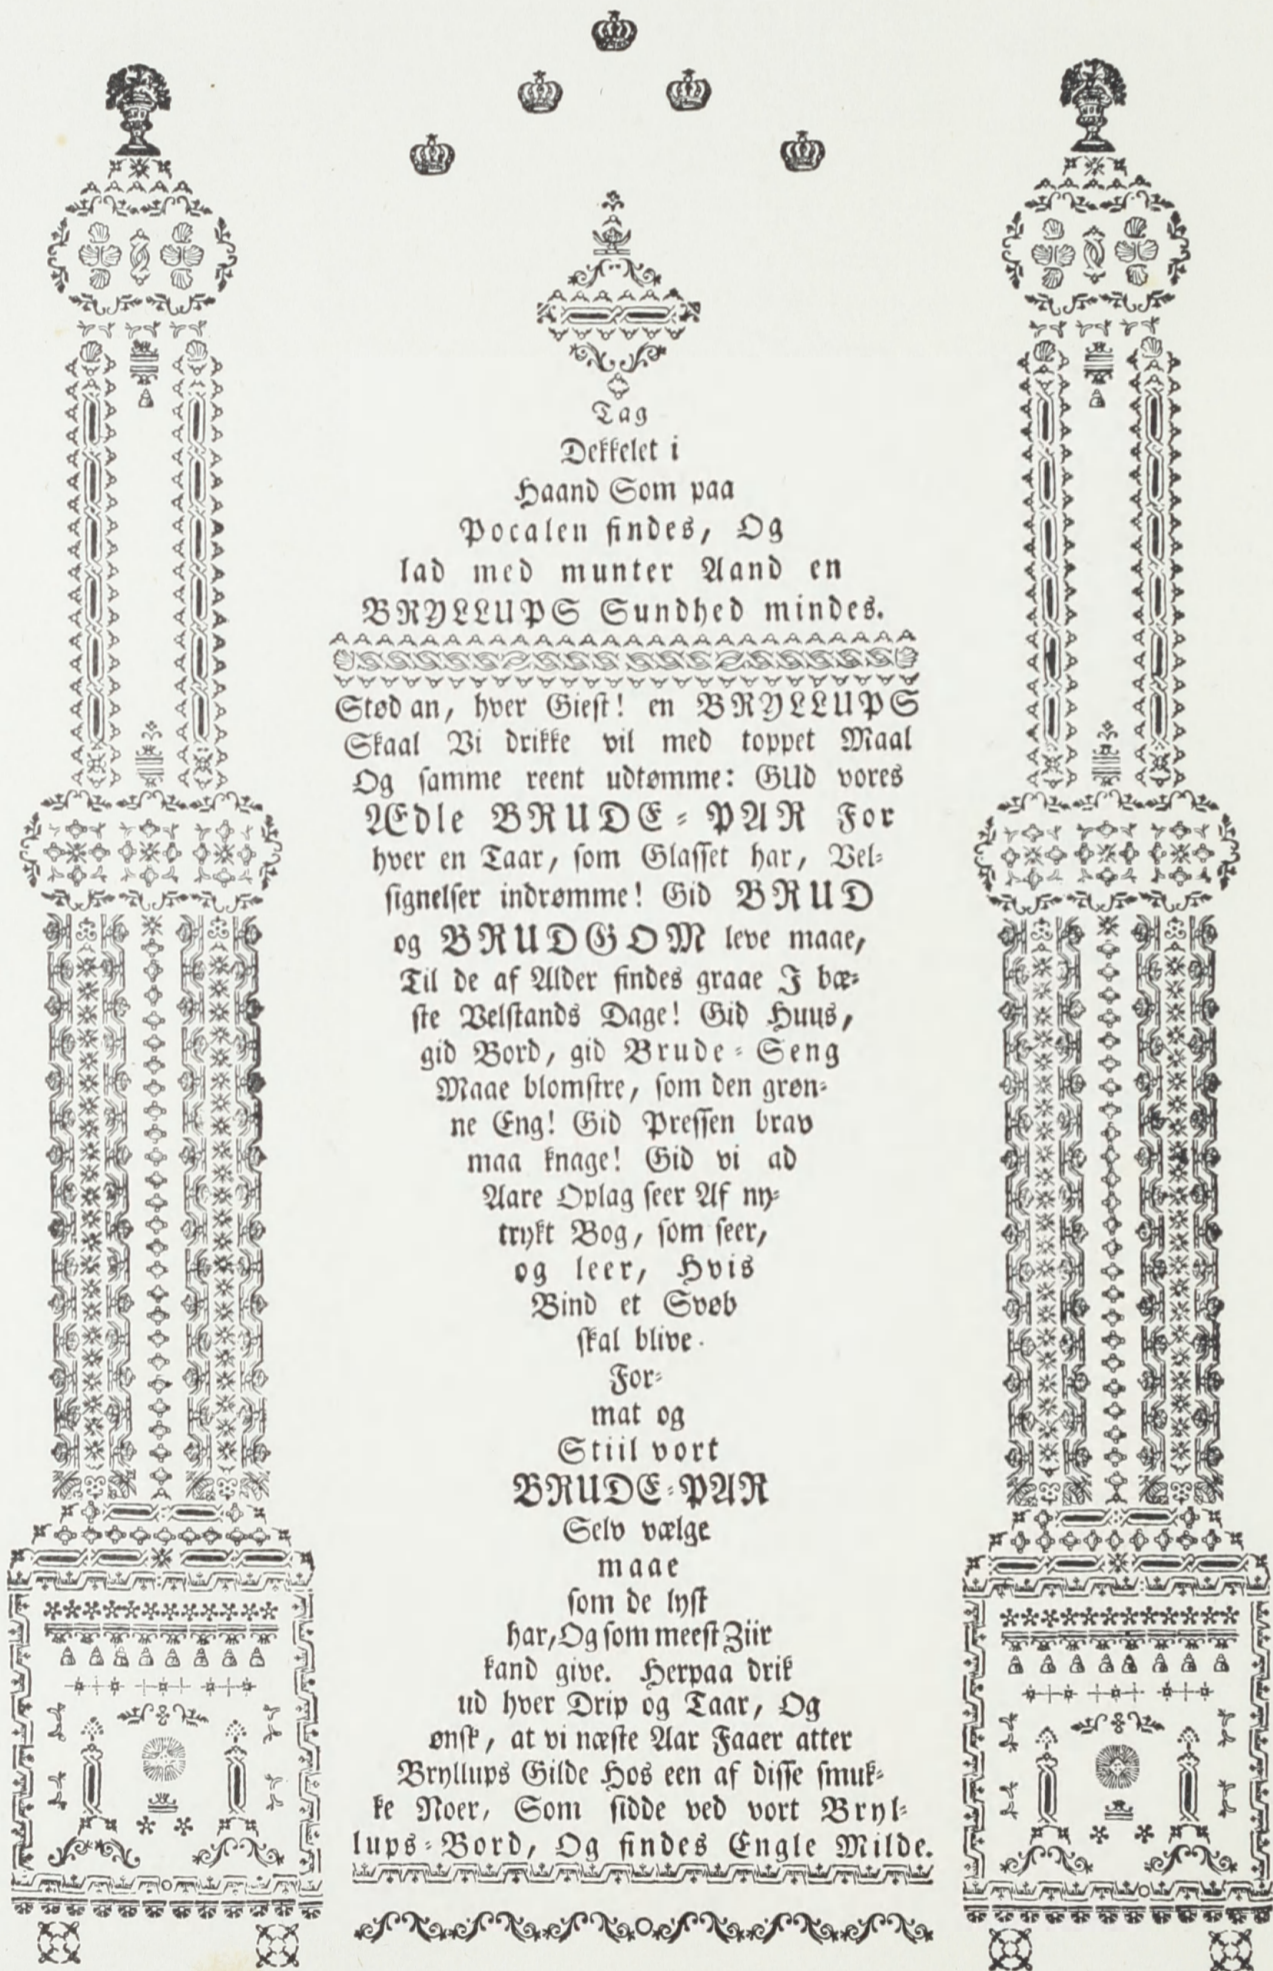 Tag
Dekkelet i
Haand Som paa
Pocalen findes, Og
lad med munter Aand en
BRYLLUPS Sundhed mindes.
Stød an, hver Giest! en BRYLLUPS
Skaal Vi drikke vil med toppet Maal
Og samme reent udtømme: GUd vores
Ædle BRUDE-PAR For
hver en Taar, som Glasset har, Vel-
signelser indrømme! Gid BRUD
og BRUDGOM leve maae,
Til de af Alder findes graae I bæ-
ste Velstands Dage! Gid Huus,
gid Bord, gid Brude-Seng
Maae blomstre, som den grøn-
ne Eng! Gid Pressen brav
maa knage! Gid vi ad
Aare Oplag seer Af ny-
trykt Bog, som seer,
og leer, Hvis
Bind et Svøb
skal blive.
For-
mat og
Stiil vort
BRUDE-PAR
Selv vælge
maae
som de lyst
har, Og som meest Ziir
kand give. Herpaa drik
ud hver Drip og Taar, Og
ønsk, at vi næste Aar Faaer atter
Bryllups Gilde Hos een af disse smuk-
ke Noer, Som sidde ved vort Bryl-
lups-Bord, Og findes Engle Milde.